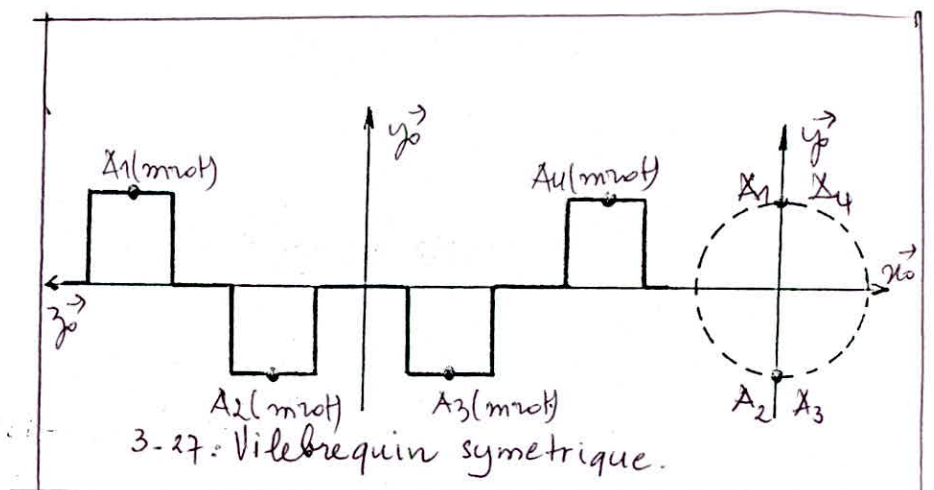 y₀
A1(mrot)
A4(mrot)
y₀
A1 A4
z₀
x₀
A2(mrot)
A3(mrot)
A2 A3
3-27: Vilebrequin symetrique.